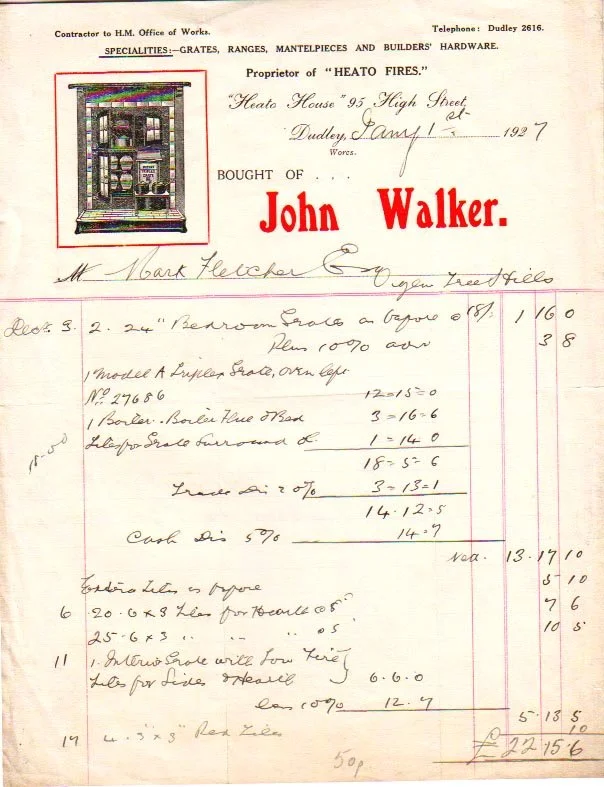 Contractor to H.M. Office of Works. Telephone: Dudley 2616.
SPECIALITIES:—GRATES, RANGES, MANTELPIECES AND BUILDERS' HARDWARE.
Proprietor of "HEATO FIRES."
"Heato House" 95 High Street,
Dudley, Jany 1st 1927
Worcs.
BOUGHT OF . . .
John Walker.
Mr Mark Fletcher Esq
Tree Hills
Decr 3. 2. 24" Bedroom Grates as before @ 18/- 1 16 0
Plus 10% 3 8
1 Model A Triplex Grate, oven left
No. 27686 12=15=0
1 Boiler. Boiler Flue & Bed 3=16=6
Tiles for Grate Surround 1=14 0
18=5=6
Trade Dis 20% 3=13=1
14.12=5
Cash Dis 5% 14=7
Nett. 13.17 10
Extra Tiles as before 5 10
6 20. 6 x 3 Tiles for Hearth @ 5" 7 6
25. 6 x 3 " " " @ 5" 10 5
11 1. Interior Grate with Low Fire
Tiles for Sides & Hearth 6.6.0
less 10% 12.7
5.13 5
17 4. 3" x 3" Red Tiles 10
£22 15.6
50p